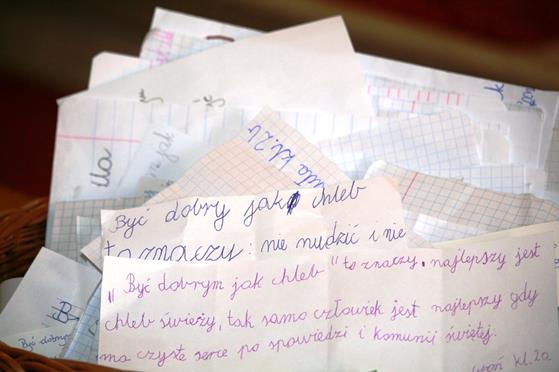 kl. 2b
Być dobry jak chleb
to znaczy: nie nudzić i nie
„Być dobrym jak chleb" to znaczy, najlepszy jest
chleb świeży, tak samo człowiek jest najlepszy gdy
ma czyste serce po spowiedzi i komunii świętej.
kl. 2a
Być dobrym